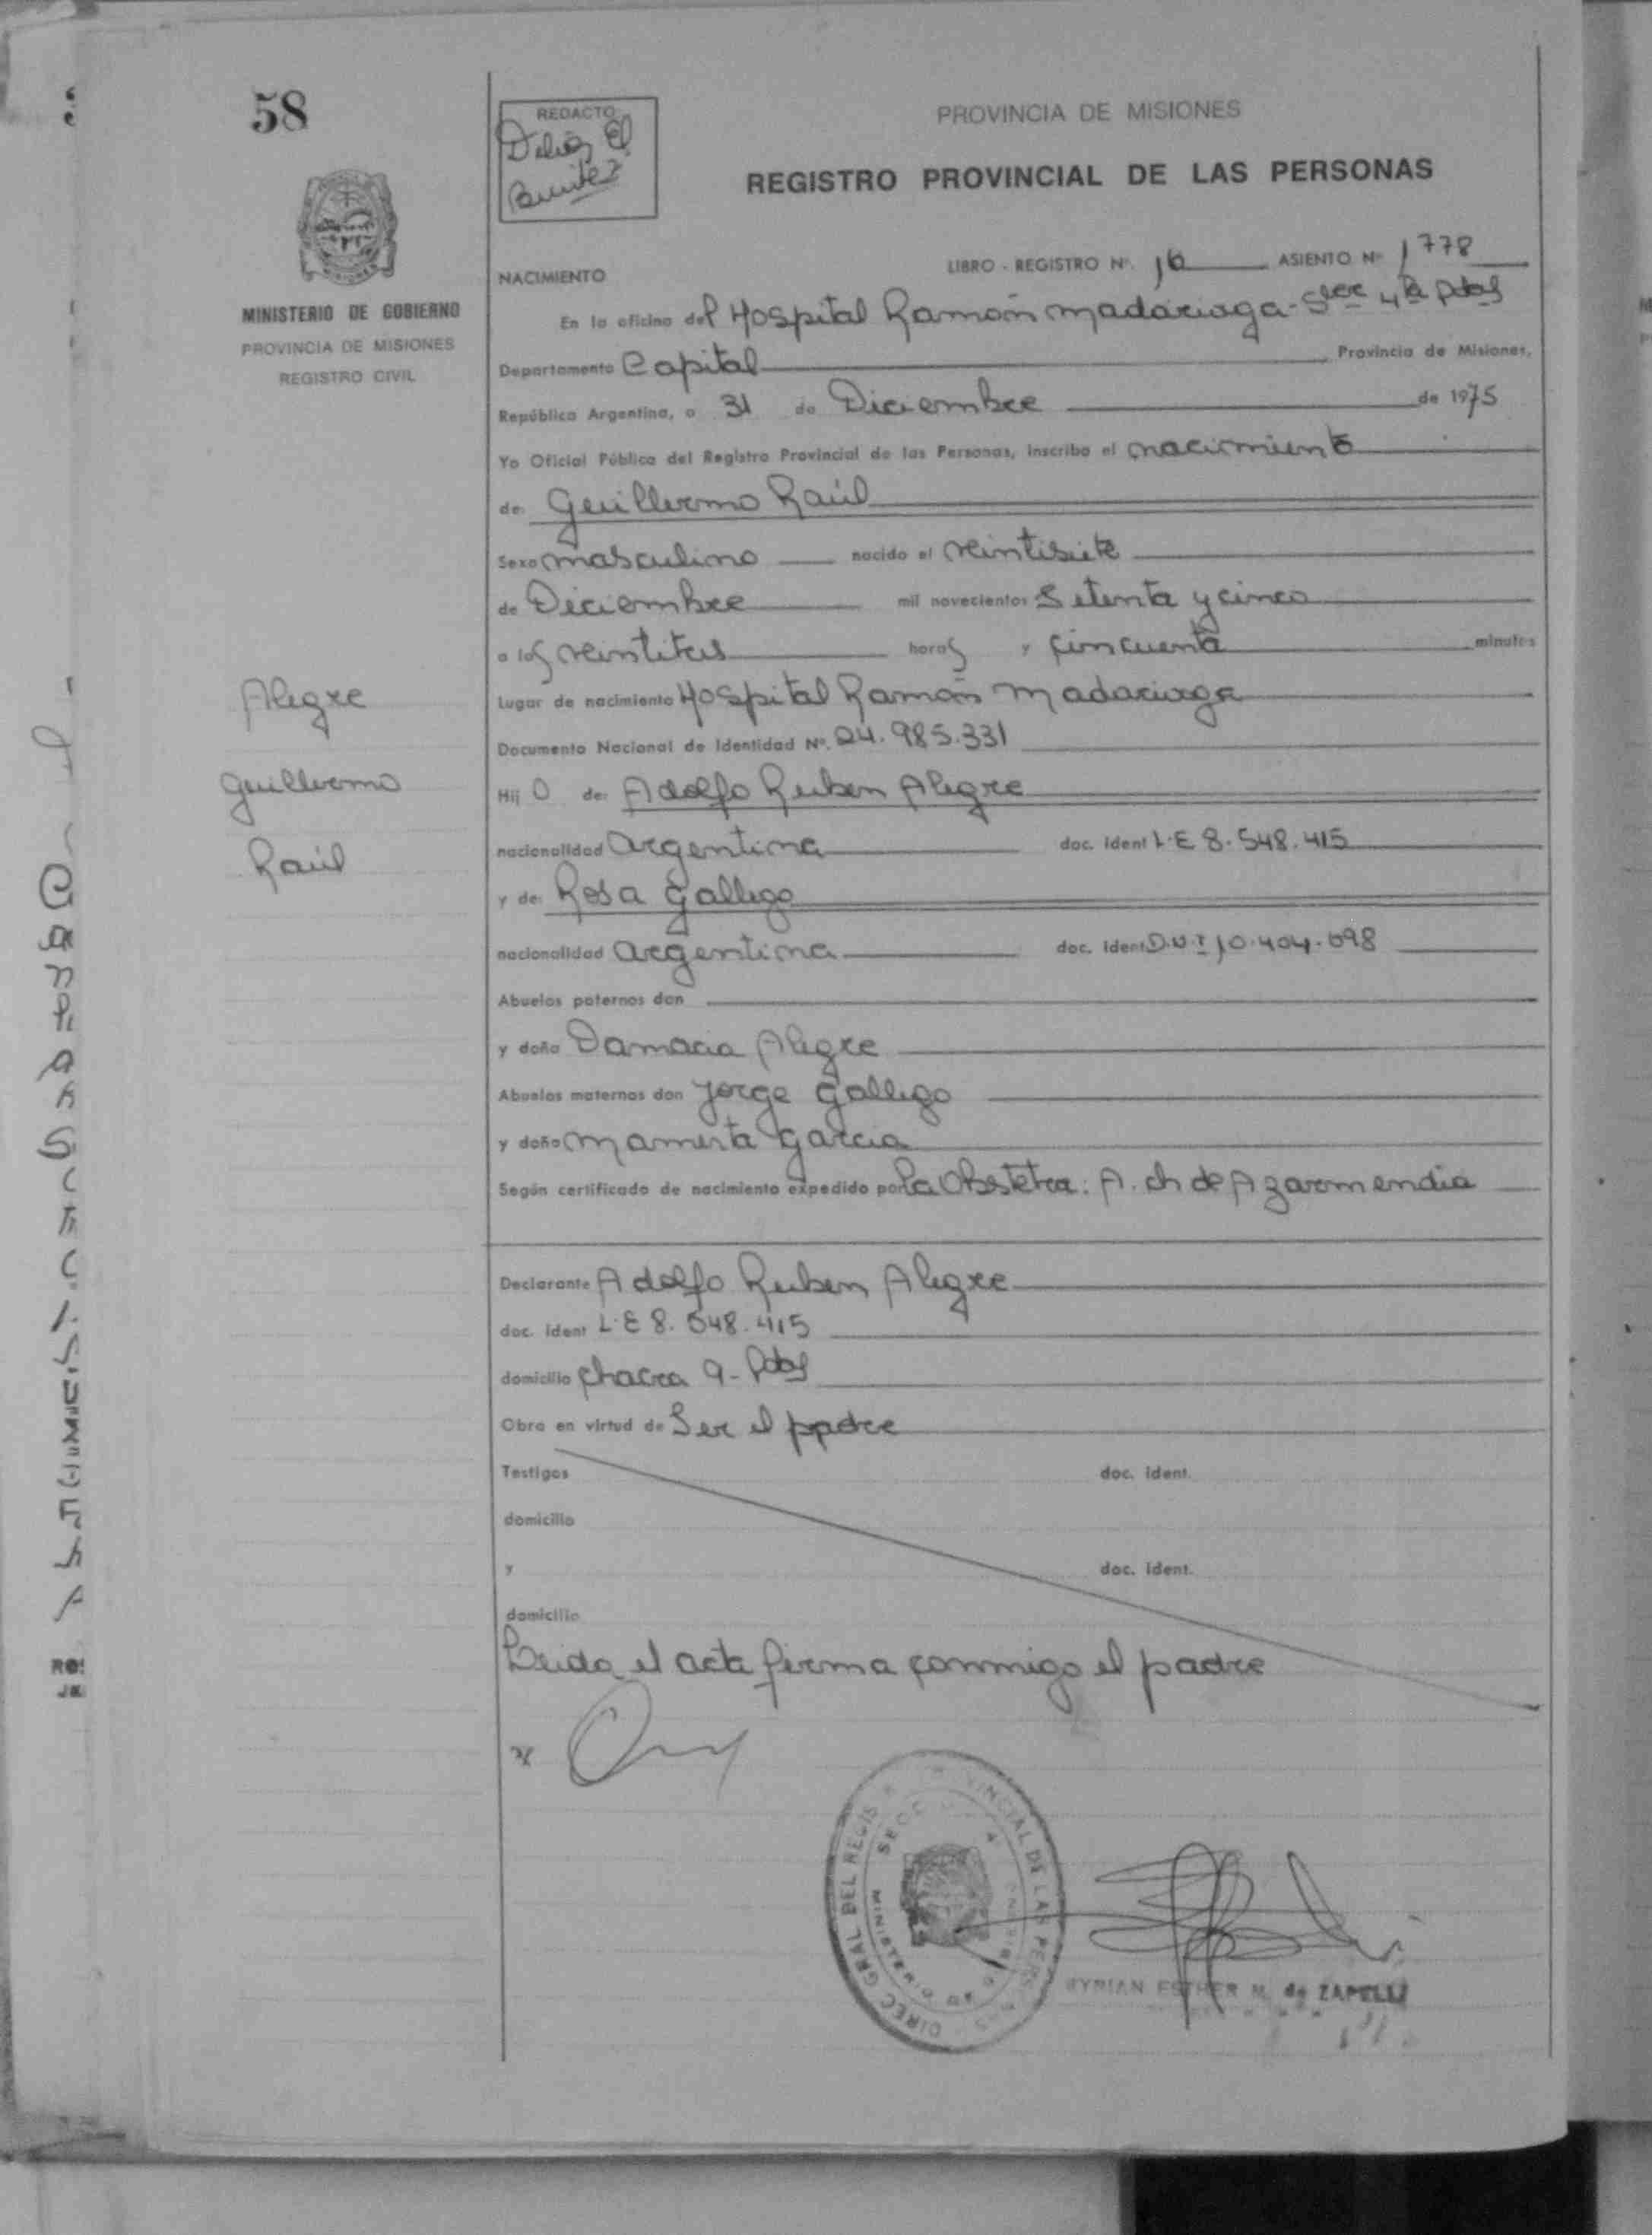 58
MINISTERIO DE GOBIERNO
PROVINCIA DE MISIONES
REGISTRO CIVIL
Alegre
Guillermo
Raúl
REDACTO
Benitez
PROVINCIA DE MISIONES
REGISTRO PROVINCIAL DE LAS PERSONAS
NACIMIENTO
LIBRO - REGISTRO Nº. 16 ASIENTO Nº 1778
En la oficina del Hospital Ramón Madariaga - Secc 4ta Pdas
Departamento Capital Provincia de Misiones,
República Argentina, a 31 de Diciembre de 1975
Yo Oficial Público del Registro Provincial de las Personas, inscribo el nacimiento
de: Guillermo Raúl
Sexo masculino nacido el veintisiete
de Diciembre mil novecientos Setenta y cinco
a las veintitres horas y cincuenta minutos
Lugar de nacimiento Hospital Ramón Madariaga
Documento Nacional de Identidad Nº. 24.985.331
Hij o de: Adolfo Ruben Alegre
nacionalidad argentina doc. ident L.E 8.548.415
y de: Rosa Gallego
nacionalidad argentina doc. ident D.N.I 10.404.698
Abuelos paternos don
y doña Damacia Alegre
Abuelos maternos don Jorge Gallego
y doña Mamerta Garcia
Según certificado de nacimiento expedido por la Obstetra: A. ch de Azarmendia
Declarante Adolfo Ruben Alegre
doc. ident L.E 8.548.415
domicilio chacra 9 - Pdas
Obra en virtud de Ser el padre
Testigos doc. ident.
domicilio
y doc. ident.
domicilio
Leida el acta firma conmigo el padre
DIREC GRAL DEL REGIS VINCIAL DE LAS PERS
SECC 4
MINISTERIO
MYRIAN ESTHER M. de ZAPELLI